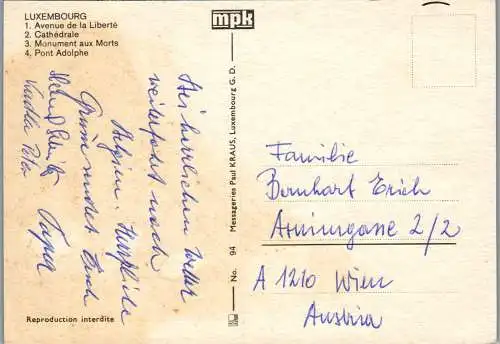 LUXEMBOURG
1. Avenue de la Liberté
2. Cathédrale
3. Monument aux Morts
4. Pont Adolphe
mpk
Bei herrlichem Wetter
weiterfahrt nach
Belgien. Herzliche
Grüße sendet Euch
Papa
Reproduction interdite
No. 94 Messageries Paul KRAUS, Luxembourg G. D.
Familie
Bernhart Erich
2/2
A 1210 Wien
Austria